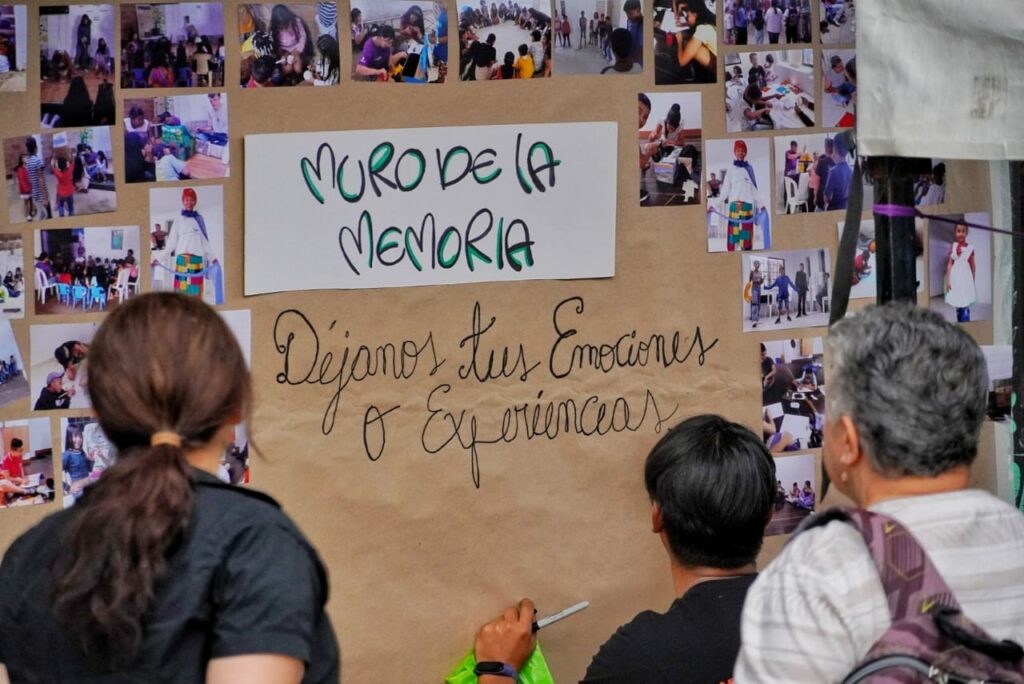 MURO DE LA
MEMORIA
Déjanos tus Emociones
o Experiencias